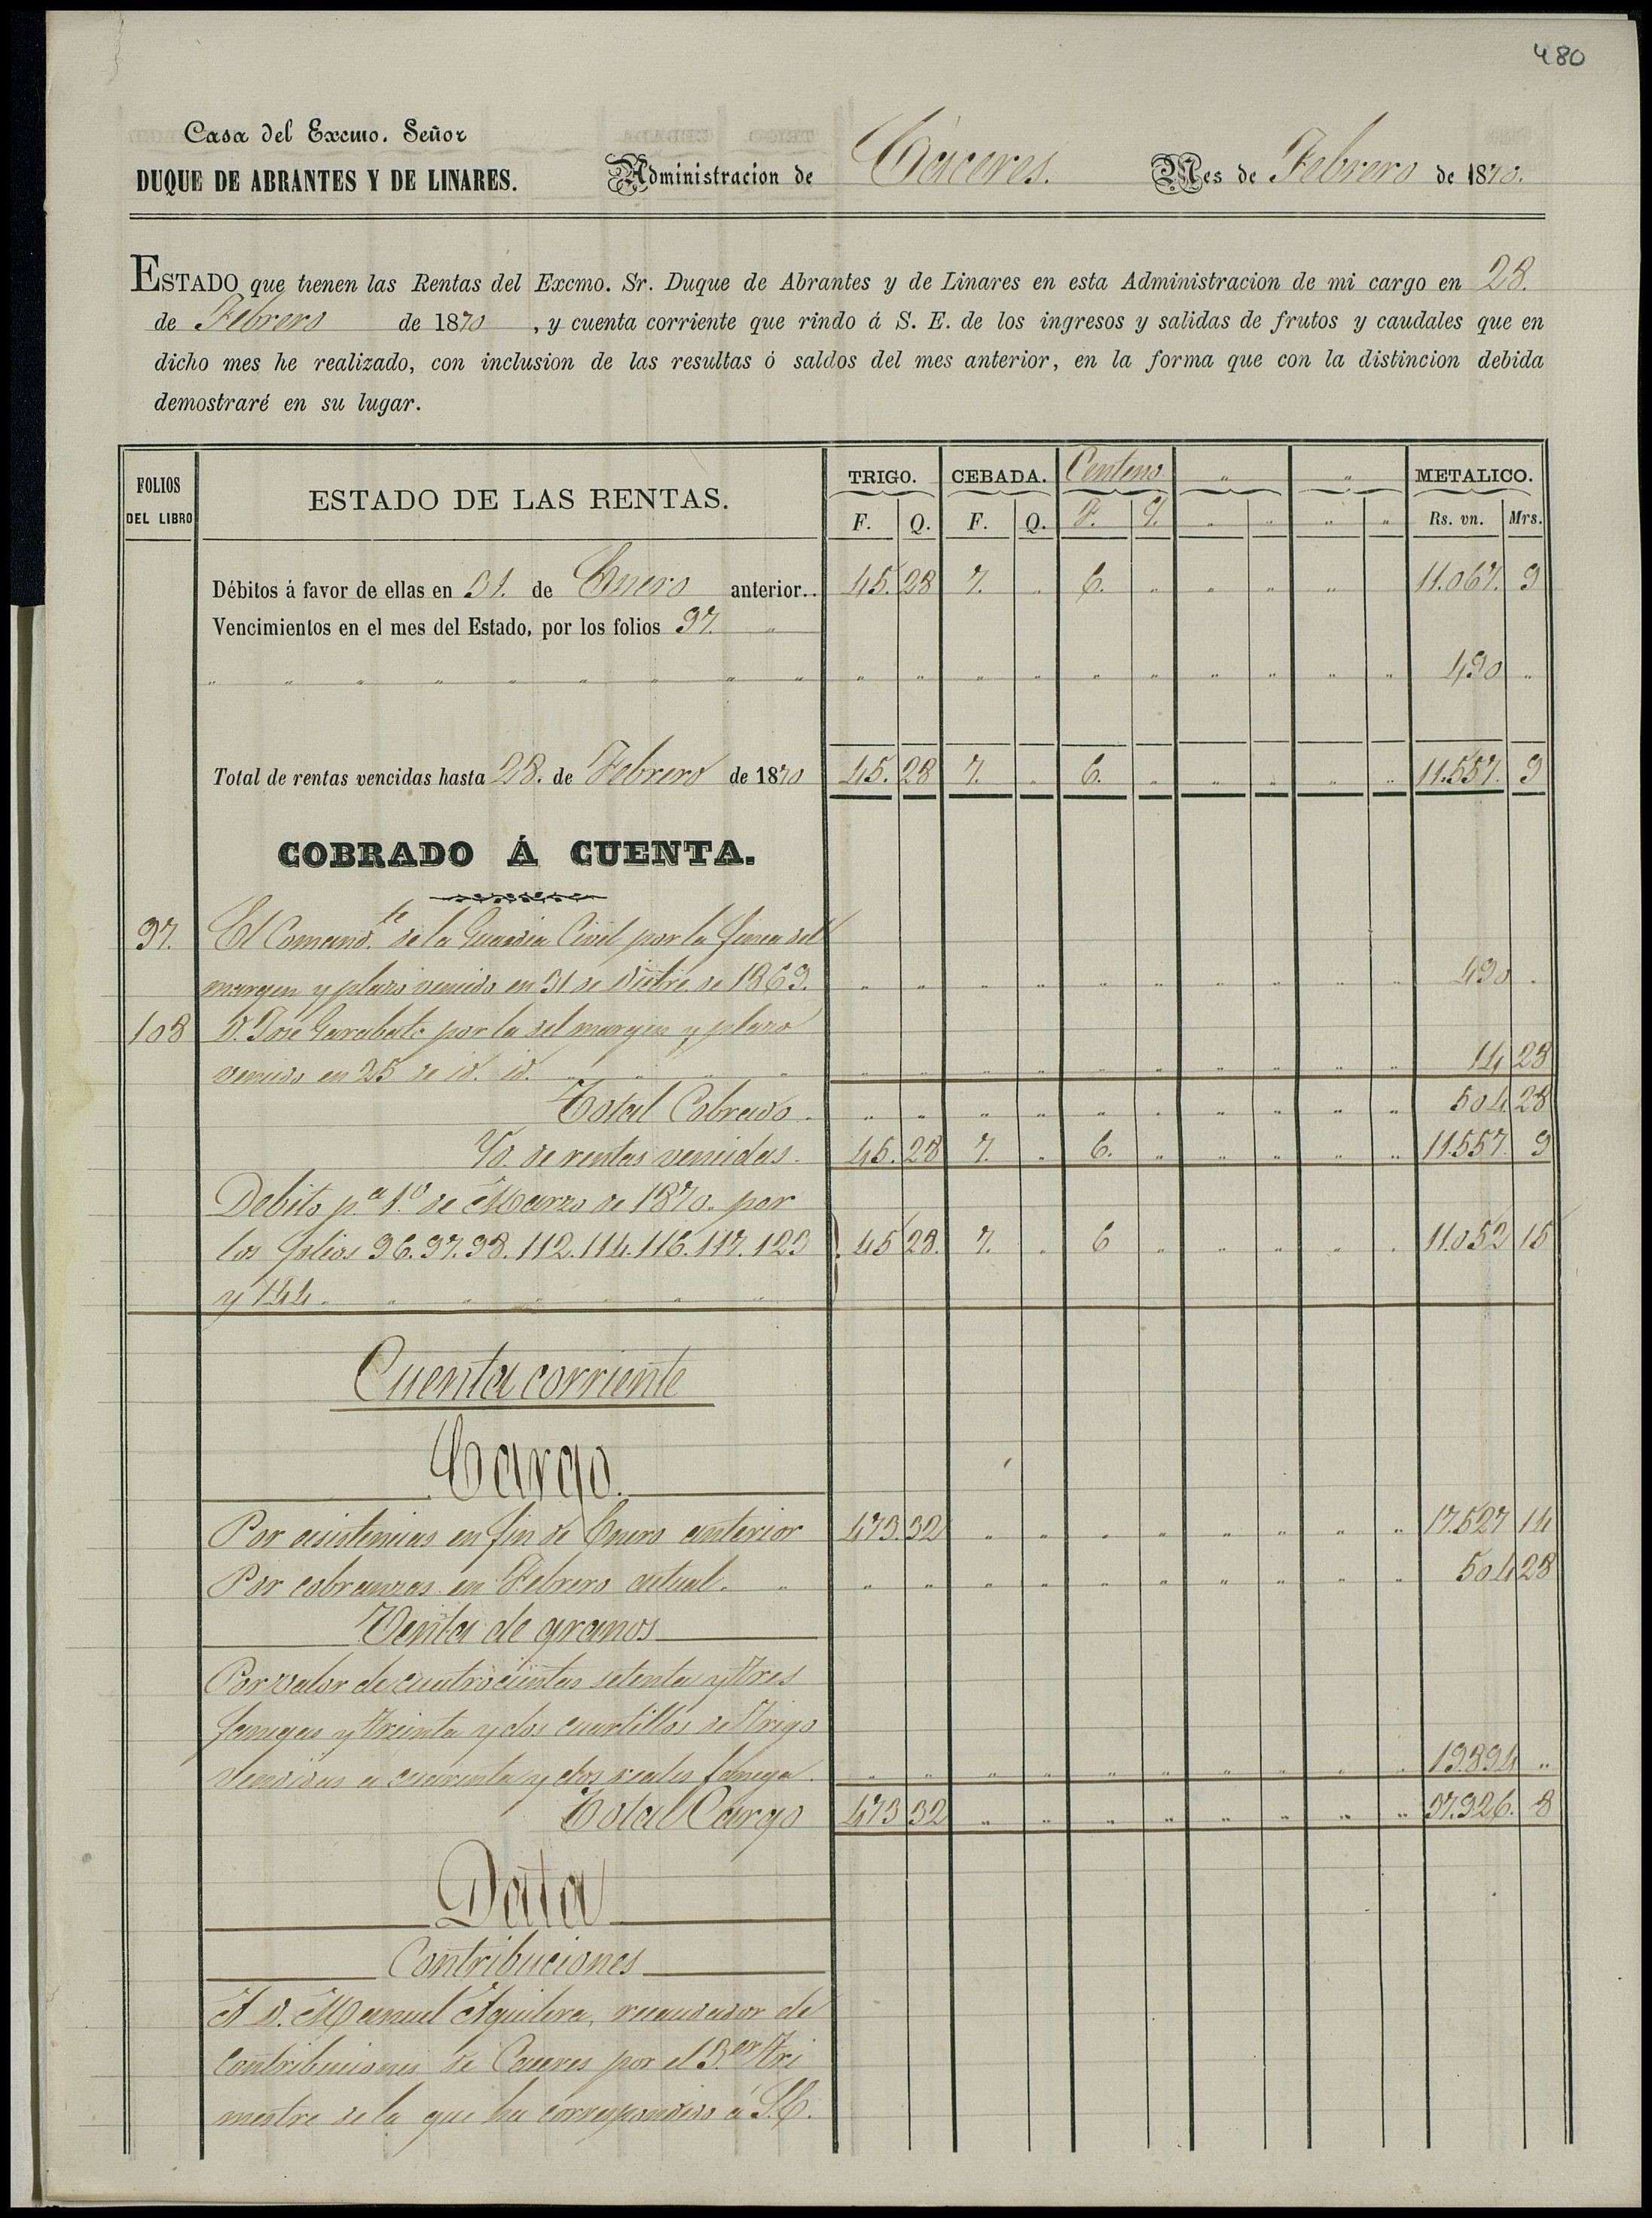 480
Casa del Excmo. Señor
DUQUE DE ABRANTES Y DE LINARES.
Administracion de Cáceres. Mes de Febrero de 1870.
ESTADO que tienen las Rentas del Excmo. Sr. Duque de Abrantes y de Linares en esta Administracion de mi cargo en 28.
de Febrero de 1870, y cuenta corriente que rindo á S. E. de los ingresos y salidas de frutos y caudales que en
dicho mes he realizado, con inclusion de las resultas ó saldos del mes anterior, en la forma que con la distincion debida
demostraré en su lugar.
FOLIOS DEL LIBRO ESTADO DE LAS RENTAS. TRIGO. CEBADA. Centeno " " METALICO.
F. Q. F. Q. F. Q. " " " " Rs. vn. Mrs.
Débitos á favor de ellas en 31. de Enero anterior.. 45. 28 7. " 6. " " " " 11.067. 9
Vencimientos en el mes del Estado, por los folios 97. "
" " " " " " " " " " " " " " " " " " " 490 "
Total de rentas vencidas hasta 28. de Febrero de 1870 45. 28 7. " 6. " " " " " 11.557. 9
COBRADO Á CUENTA.
97. El Comand.te de la Guardia Civil por la finca del
margen y plazo vencido en 31 de Dicbre. de 1869. " " " " " " " " " " 490 "
108 D. José Garabato por la del margen y plazo
vencido en 25 de id. id. " " " " " " " " " " " " " 14 28
Total Cobrado. " " " " " " " " " " 504 28
Yd. de rentas vencidas. 45. 28 7. " 6. " " " " " 11.557. 9
Debito p.a 1.o de Marzo de 1870. por
los folios 96. 97. 98. 112. 114. 116. 117. 123 45 28. 7. " 6 " " " " " 11.052 15
y 144. " " " " " "
Cuenta corriente
Cargo.
Por existencias en fin de Enero anterior 473. 32 " " " " " " " " 17.527 14
Por cobranzas en Febrero actual. " " " " " " " " " " " 504 28
Venta de granos
Por valor de cuatrocientas setenta y tres
fanegas y treinta y dos cuartillos de Trigo
vendidas a cuarenta y dos reales fanega. " " " " " " " " " " 19.894 "
Total Cargo 473 32 " " " " " " " " 37.926. 8
Data
Contribuciones
A D. Manuel Aguilera, recaudador de
Contribuciones de Caceres por el 3.er Tri
mestre de la que ha correspondido á S.E.